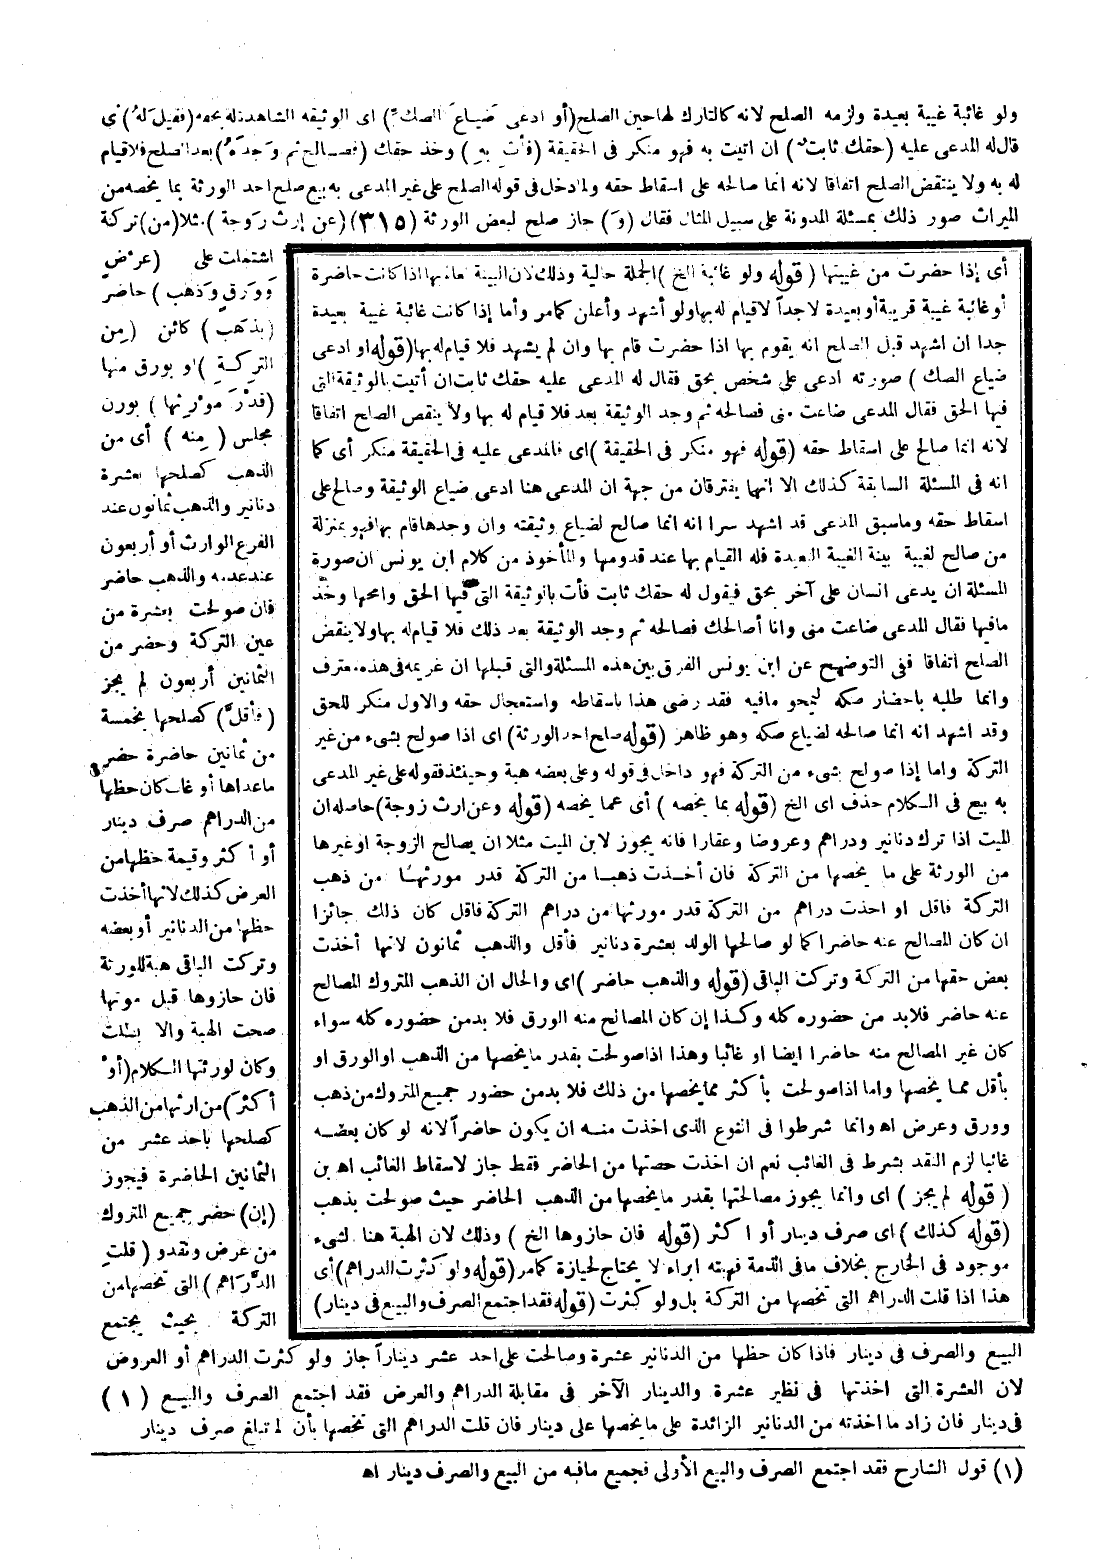 ولو غائبة غيبة بعيدة ولزمه الصلح لانه كالتارك لها حين الصلح (أو ادعى ضياع الصك) اى الوثيقه الشاهدة له بحقه (فقيل له) أى
قال له المدعى عليه (حقك ثابت) ان اتيت به فهو منكر فى الحقيقة (فأت به) وخذ حقك (فصالح ثم وجده) بعد الصلح فلا قيام
له به ولا ينتقض الصلح اتفاقا لانه انما صالحه على اسقاط حقه ولما دخل فى قوله الصلح على غير المدعى به بيع صلح احد الورثة بما يخصه من
الميراث صور ذلك بمسئلة المدونة على سبيل المثال فقال (و) جاز صلح لبعض الورثة (٣١٥) (عن إرث زوجة) مثلا (من) تركة
اشتملت على (عرض
وورق وذهب) حاضر
(بذهب) كائن (من
التركة) او بورق منها
(قدر مورثها) بورن
مجلس (منه) أى من
الذهب كصلحها بعشرة
دنانير والذهب ثمانون عند
الفرع الوارث أو أربعون
عند عدمه والذهب حاضر
فان صولحت بعشرة من
عين التركة وحضر من
الثمانين أربعون لم يجز
(فأقل) كصلحها بخمسة
من ثمانين حاضرة حضر
ماعداها أو غاب كان حظها
من الدراهم صرف دينار
أو أكثر وقيمة حظها من
العرض كذلك لانها أخذت
حظها من الدنانير أو بعضه
وتركت الباقى هبة للورثة
فان حازوها قبل موتها
صحت الهبة والا بطلت
وكان لورثتها الكلام (أو
أكثر) من ارثها من الذهب
كصلحها باحد عشر من
الثمانين الحاضرة فيجوز
(إن) حضر جميع المتروك
من عرض ونقد و (قلت
الدراهم) التى تخصها من
التركة بحيث يجتمع
أى إذا حضرت من غيبتها (قوله ولو غائبة الخ) الجملة حالية وذلك لان البينة عالم بها اذا كانت حاضرة
أو غائبة غيبة قريبة أو بعيدة لا جداً لا قيام له بها ولو أشهد وأعلن كما مر وأما إذا كانت غائبة غيبة بعيدة
جدا ان اشهد قبل الصلح انه يقوم بها اذا حضرت قام بها وان لم يشهد فلا قيام له بها (قوله او ادعى
ضياع الصك) صورته ادعى على شخص بحق فقال له المدعى عليه حقك ثابت ان أتيت بالوثيقة التى
فيها الحق فقال المدعى ضاعت منى فصالحه ثم وجد الوثيقة بعد فلا قيام له بها ولا ينقض الصلح اتفاقا
لانه انما صالح على اسقاط حقه (قوله فهو منكر فى الحقيقة) اى فالمدعى عليه فى الحقيقة منكر أى كما
انه فى المسئلة السابقة كذلك الا انهما يفترقان من جهة ان المدعى هنا ادعى ضياع الوثيقة وصالح على
اسقاط حقه وما سبق المدعى قد اشهد سرا انه انما صالح لضياع وثيقته وان وجدها قام بها فهو بمنزلة
من صالح لغيبة بينة الغيبة البعيدة فله القيام بها عند قدومها والمأخوذ من كلام ابن يونس ان صورة
المسئلة ان يدعى انسان على آخر بحق فيقول له حقك ثابت فأت بالوثيقة التى فيها الحق وامحها وخذ
مافيها فقال المدعى ضاعت منى وانا أصالحك فصالحه ثم وجد الوثيقة بعد ذلك فلا قيام له بها ولا ينقض
الصلح اتفاقا ففى التوضيح عن ابن يونس الفرق بين هذه المسئلة والتى قبلها ان غريمه فى هذه معترف
وانما طلبه باحضار صكه ليمحو مافيه فقد رضى هذا باسقاطه واستعجال حقه والاول منكر للحق
وقد اشهد انه انما صالحه لضياع صكه وهو ظاهر (قوله صلح احد الورثة) اى اذا صولح بشىء من غير
التركة واما إذا صولح بشىء من التركة فهو داخل فى قوله وعلى بعضه هبة وحينئذ فقوله على غير المدعى
به بيع فى الكلام حذف اى الخ (قوله بما يخصه) أى عما يخصه (قوله وعن ارث زوجة) حاصله ان
الميت اذا ترك دنانير ودراهم وعروضا وعقارا فانه يجوز لابن الميت مثلا ان يصالح الزوجة او غيرها
من الورثة على ما يخصها من التركة فان أخذت ذهبا من التركة قدر مورثها من ذهب
التركة فاقل او اخذت دراهم من التركة قدر مورثها من دراهم التركة فاقل كان ذلك جائزا
ان كان المصالح عنه حاضرا كما لو صالحها الولد بعشرة دنانير فأقل والذهب ثمانون لانها أخذت
بعض حقها من التركة وتركت الباقى (قوله والذهب حاضر) اى والحال ان الذهب المتروك المصالح
عنه حاضر فلابد من حضوره كله وكذا إن كان المصالح منه الورق فلا بد من حضوره كله سواء
كان غير المصالح منه حاضرا ايضا او غائبا وهذا اذا صولحت بقدر ما يخصها من الذهب او الورق او
بأقل مما يخصها واما اذا صولحت بأكثر مما يخصها من ذلك فلا بد من حضور جميع المتروك من ذهب
وورق وعرض اه وانما شرطوا فى النوع الذى اخذت منه ان يكون حاضراً لانه لو كان بعضه
غائبا لزم النقد بشرط فى الغائب نعم ان اخذت حصتها من الحاضر فقط جاز لاسقاط الغائب اه بن
(قوله لم يجز) اى وانما يجوز مصالحتها بقدر ما يخصها من الذهب الحاضر حيث صولحت بذهب
(قوله كذلك) اى صرف دينار أو اكثر (قوله فان حازوها الخ) وذلك لان الهبة هنا لشىء
موجود فى الخارج بخلاف مافى الذمة فهبته ابراء لا يحتاج لحيازة كما مر (قوله ولو كثرت الدراهم) أى
هذا اذا قلت الدراهم التى تخصها من التركة بل ولو كثرت (قوله فقد اجتمع الصرف والبيع فى دينار)
البيع والصرف فى دينار فاذا كان حظها من الدنانير عشرة وصالحت على احد عشر ديناراً جاز ولو كثرت الدراهم أو العروض
لان العشرة التى اخذتها فى نظير عشرة والدينار الآخر فى مقابلة الدراهم والعرض فقد اجتمع الصرف والبيع (١)
فى دينار فان زاد ما اخذته من الدنانير الزائدة على ما يخصها على دينار فان قلت الدراهم التى تخصها بأن لم تبلغ صرف دينار
(١) قول الشارح فقد اجتمع الصرف والبيع الأولى فجميع مافيه من البيع والصرف دينار اه